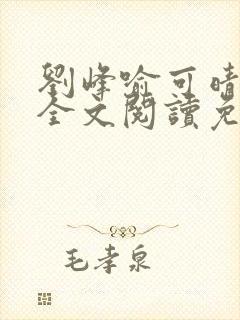 劉峰喻可晴
全文閱讀免
毛孝泉